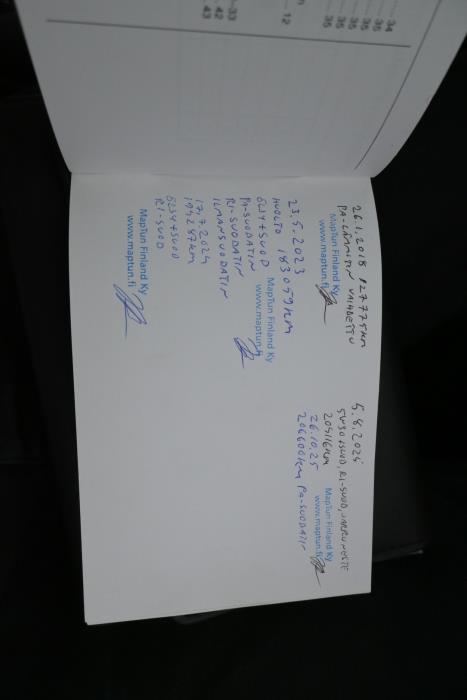 34
35
35
35
35
35
12
33
42
43
26.1.2018 127775km
PA-LÄMMITIN VAIHDETTU
MapTun Finland Ky
www.maptun.fi
23.5.2023
HUOLTO 183059km
ÖLJY+SUOD
PA-SUODATIN
RI-SUODATIN
ILMANSUODATIN
MapTun Finland Ky
www.maptun.fi
17.7.2024
194287km
ÖLJY+SUOD
RI-SUOD
MapTun Finland Ky
www.maptun.fi
5.8.2025
5W30+SUOD, RI-SUOD, JARRUNESTE
205116km
MapTun Finland Ky
www.maptun.fi
26.10.25
206600km PA-SUODATIN